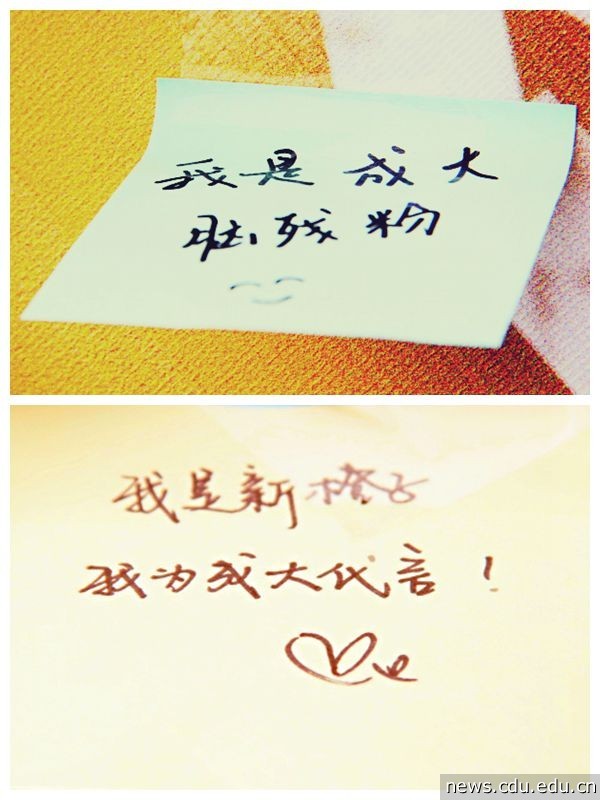 我是成大
脑残粉
我是新橙子
我为成大代言！
news.cdu.edu.cn